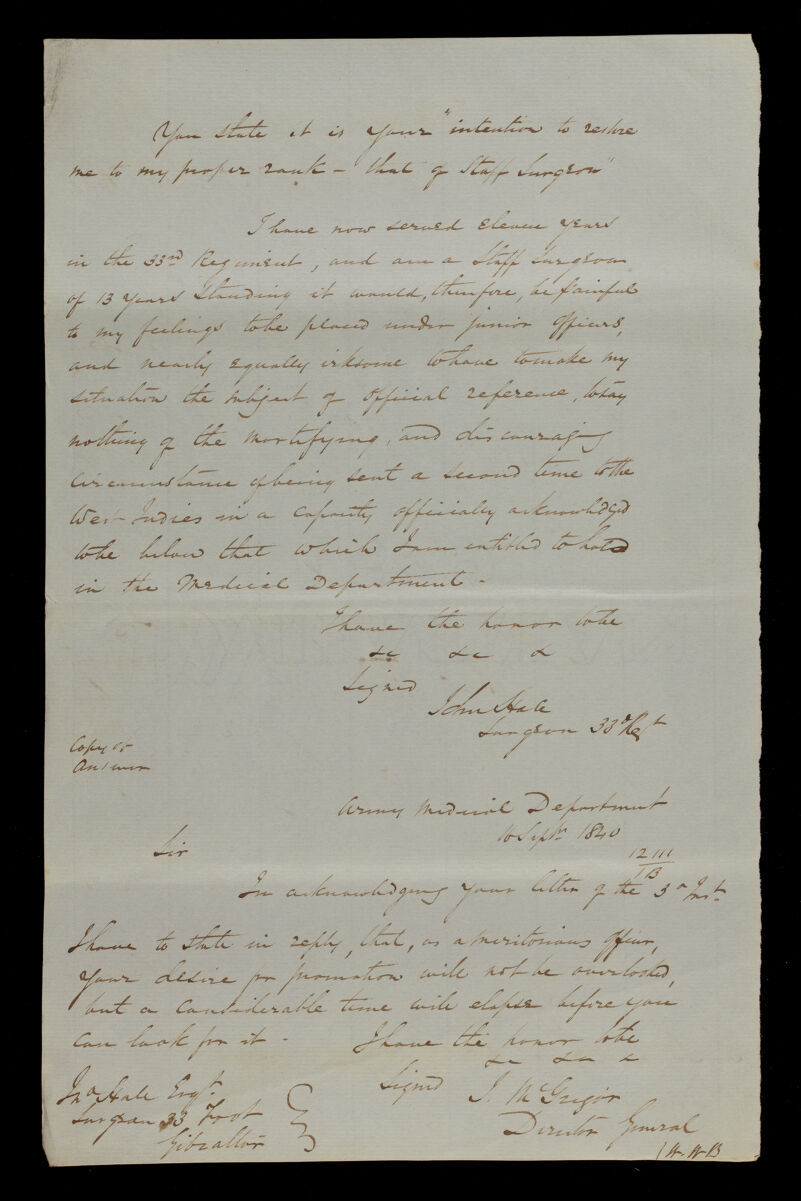 You state it is your "intention to restore
me to my proper rank – that of Staff Surgeon"
I have now served eleven years
in the 33rd Regiment, and am a Staff Surgeon
of 13 years standing it would, therefore, be painful
to my feelings to be placed under junior officers,
and nearly equally irksome to have to make my
situation the subject of official reference, to say
nothing of the mortifying, and discouraging
circumstance of being sent a second time to the
West Indies in a capacity officially acknowledged
to be below that which I am entitled to hold
in the Medical Department –
I have the honor to be
&c &c &
Signed
John Hale
Surgeon 33d Regt
Copy of
Answer
Army Medical Department
10 Septr 1840
12111
/13
Sir
In acknowledging your letter of the 3d Inst.
I have to state in reply, that, as a meritorious officer,
your desire for promotion will not be overlooked,
but a considerable time will elapse before you
can look for it –
I have the honor to be
&c &c &
Signed J. McGrigor
Director General
Jno Hale Esqr.
Surgeon 33 Foot
Gibraltar